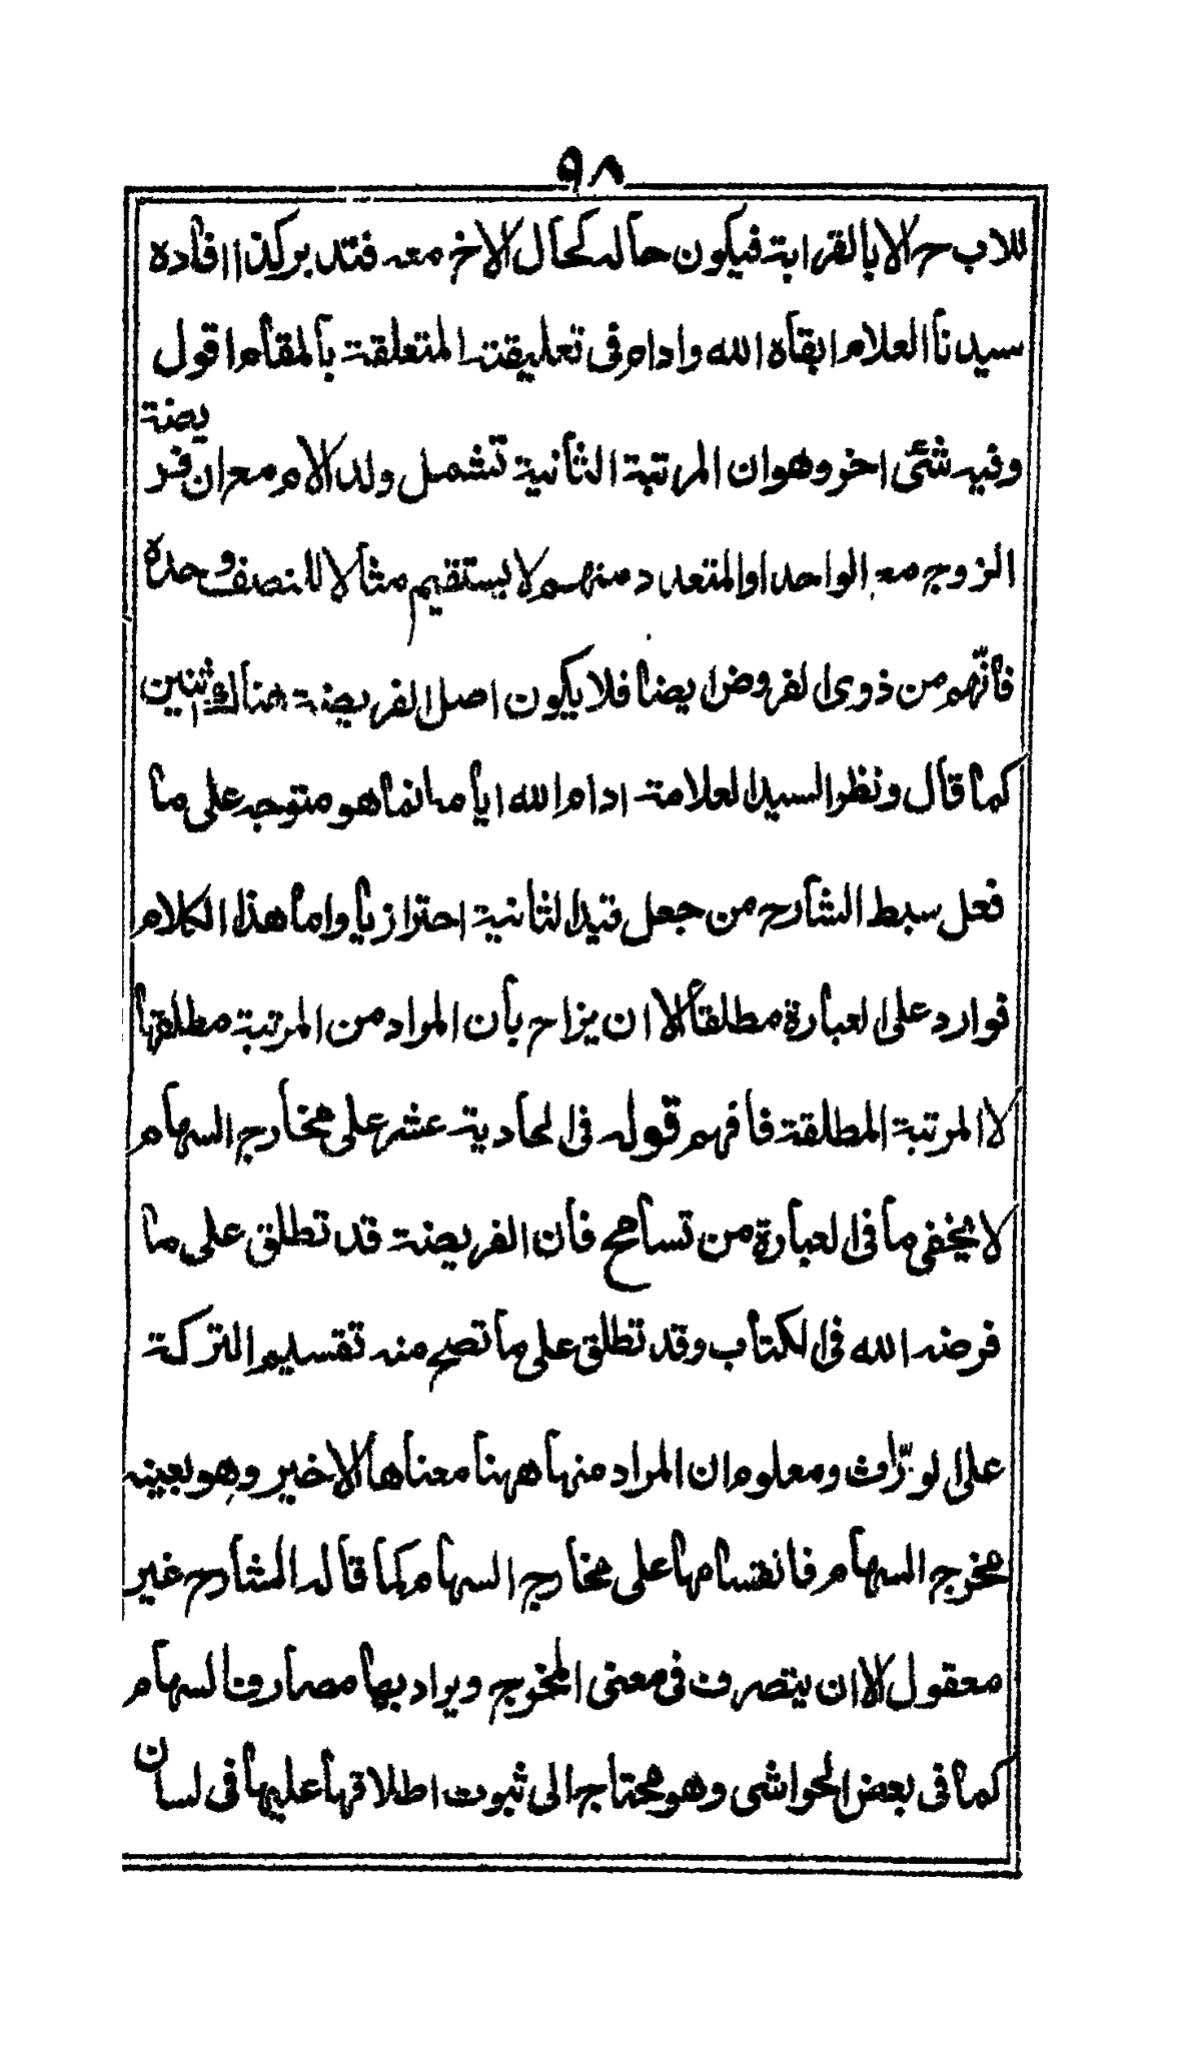 ٩٨
للاب ح الا بالقرابة فيكون حاله كحال الاخ معه فتدبر كذا افاده
سيدنا العلام ابقاه الله وادام فى تعليقته المتعلقة بالمقام اقول
وفيه شئ اخر وهو ان المرتبة الثانية تشمل ولد الام مع ان فريضة
الزوج مع الواحد او المتعدد منهم لا يستقيم مثالا للنصف وحده
فانّهم من ذوى الفروض ايضا فلا يكون اصل الفريضة هناك اثنين
كما قال ونظر السيد العلامة ادام الله ايامه انما هو متوجه على ما
فعل سبط الشارح من جعل قيد الثانية احترازيا واما هذا الكلام
فوارد على العبارة مطلقا الا ان يزاح بأن المراد من المرتبة مطلقها
لا المرتبة المطلقة فافهم قوله فى الحادية عشر على مخارج السهام
لا يخفى ما فى العبارة من تسامح فان الفريضة قد تطلق على ما
فرضه الله فى الكتاب وقد تطلق على ما تصح منه تقسيم التركة
على الورّاث ومعلوم ان المراد منها ههنا معناها الاخير وهو بعينه
مخرج السهام فانقسامها على مخارج السهام كما قاله الشارح غير
معقول الا ان يتصرف فى معنى المخرج ويراد بها مصارف السهام
كما فى بعض الحواشى وهو محتاج الى ثبوت اطلاقها عليها فى لسان